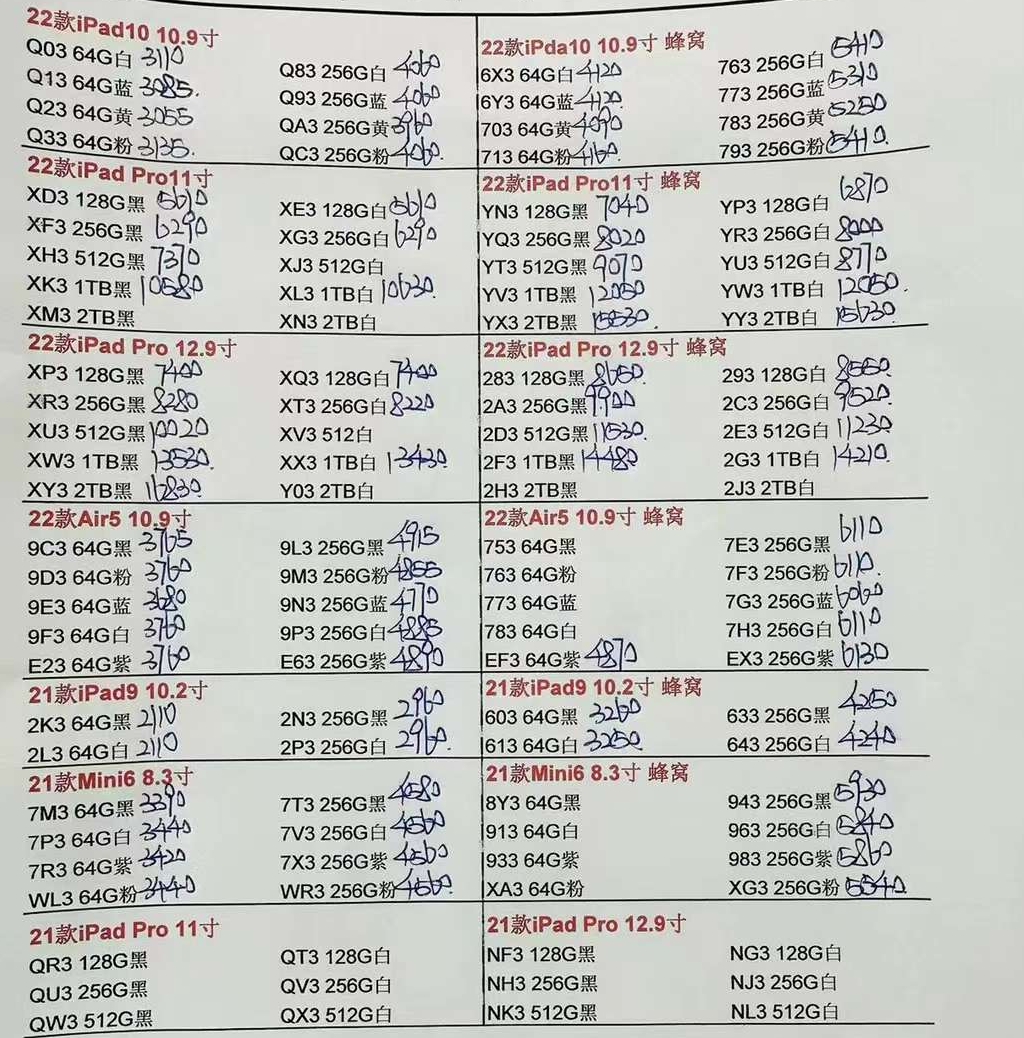 22款iPad10 10.9寸
Q03 64G白 3110
Q83 256G白 4060
Q13 64G蓝 3085.
Q93 256G蓝 4060
Q23 64G黄 3055
QA3 256G黄 3960
Q33 64G粉 3135.
QC3 256G粉 4060.
22款iPda10 10.9寸 蜂窝
6X3 64G白 4120
763 256G白 5410
6Y3 64G蓝 4120.
773 256G蓝 5310
703 64G黄 4090
783 256G黄 5250
713 64G粉 4160.
793 256G粉 5410.
22款iPad Pro11寸
XD3 128G黑 5610
XE3 128G白 5610
XF3 256G黑 6290
XG3 256G白 6290
XH3 512G黑 7370
XJ3 512G白
XK3 1TB黑 10580
XL3 1TB白 10630.
XM3 2TB黑
XN3 2TB白
22款iPad Pro11寸 蜂窝
YN3 128G黑 7040
YP3 128G白 6870
YQ3 256G黑 8020
YR3 256G白 8000
YT3 512G黑 9070
YU3 512G白 8770
YV3 1TB黑 12050
YW3 1TB白 12050.
YX3 2TB黑
YY3 2TB白 15630.
22款iPad Pro 12.9寸
XP3 128G黑 7400
XQ3 128G白 7400
XR3 256G黑 8280
XT3 256G白 8220
XU3 512G黑 10020
XV3 512白
XW3 1TB黑 13530.
XX3 1TB白 13430.
XY3 2TB黑 16830.
Y03 2TB白
22款iPad Pro 12.9寸 蜂窝
283 128G黑 8650.
293 128G白 8550.
2A3 256G黑 9900
2C3 256G白 9520.
2D3 512G黑 11530.
2E3 512G白 11230.
2F3 1TB黑 14480
2G3 1TB白 14210.
2H3 2TB黑
2J3 2TB白
22款Air5 10.9寸
9C3 64G黑 3765
9L3 256G黑 4915
9D3 64G粉 3760
9M3 256G粉 4855
9E3 64G蓝 3680
9N3 256G蓝 4770
9F3 64G白 3760
9P3 256G白 4885
E23 64G紫 3760
E63 256G紫 4890
22款Air5 10.9寸 蜂窝
753 64G黑
7E3 256G黑 6110
763 64G粉
7F3 256G粉 6110.
773 64G蓝
7G3 256G蓝 6060
783 64G白
7H3 256G白 6110
EF3 64G紫 4870
EX3 256G紫 6130
21款iPad9 10.2寸
2K3 64G黑 2110
2N3 256G黑 2960
2L3 64G白 2110
2P3 256G白 2960.
21款iPad9 10.2寸 蜂窝
603 64G黑 3260
633 256G黑 4250
613 64G白 3250.
643 256G白 4240
21款Mini6 8.3寸
7M3 64G黑 3390
7T3 256G黑 4580
7P3 64G白 3440
7V3 256G白 4560
7R3 64G紫 3420
7X3 256G紫 4560
WL3 64G粉 3440
WR3 256G粉 4560.
21款Mini6 8.3寸 蜂窝
8Y3 64G黑
943 256G黑 5930
913 64G白
963 256G白 5840
933 64G紫
983 256G紫 5860
XA3 64G粉
XG3 256G粉 5540.
21款iPad Pro 11寸
QR3 128G黑
QT3 128G白
QU3 256G黑
QV3 256G白
QW3 512G黑
QX3 512G白
21款iPad Pro 12.9寸
NF3 128G黑
NG3 128G白
NH3 256G黑
NJ3 256G白
NK3 512G黑
NL3 512G白